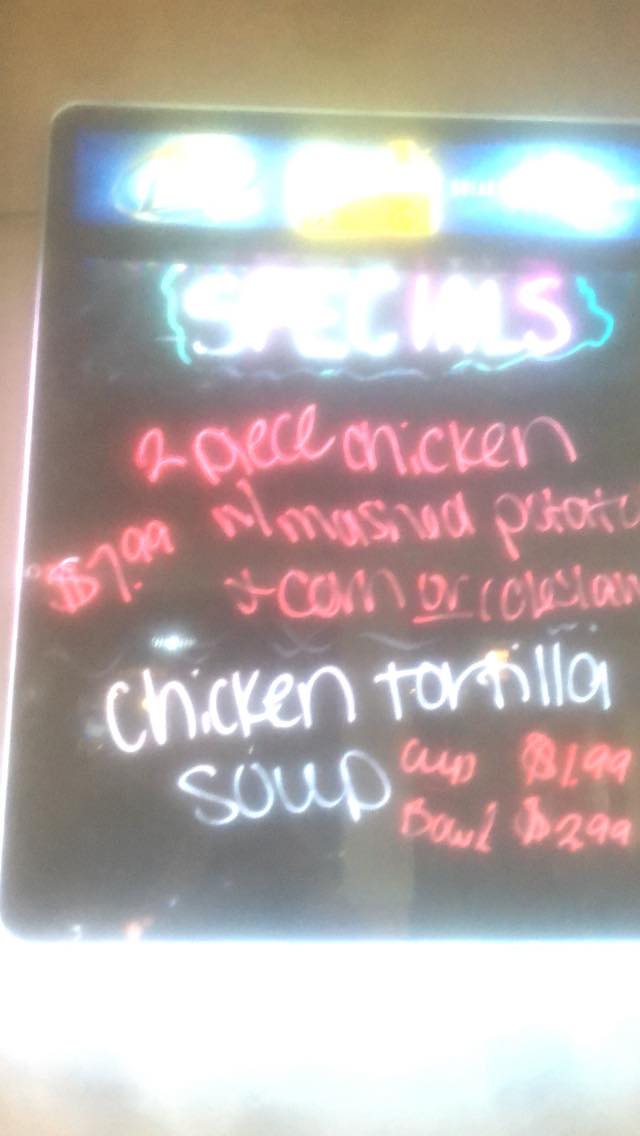 SPECIALS
2 piece chicken
w/ mashed potato
$7.99
+ corn or coleslaw
chicken tortilla
soup
cup $1.99
Bowl $2.99